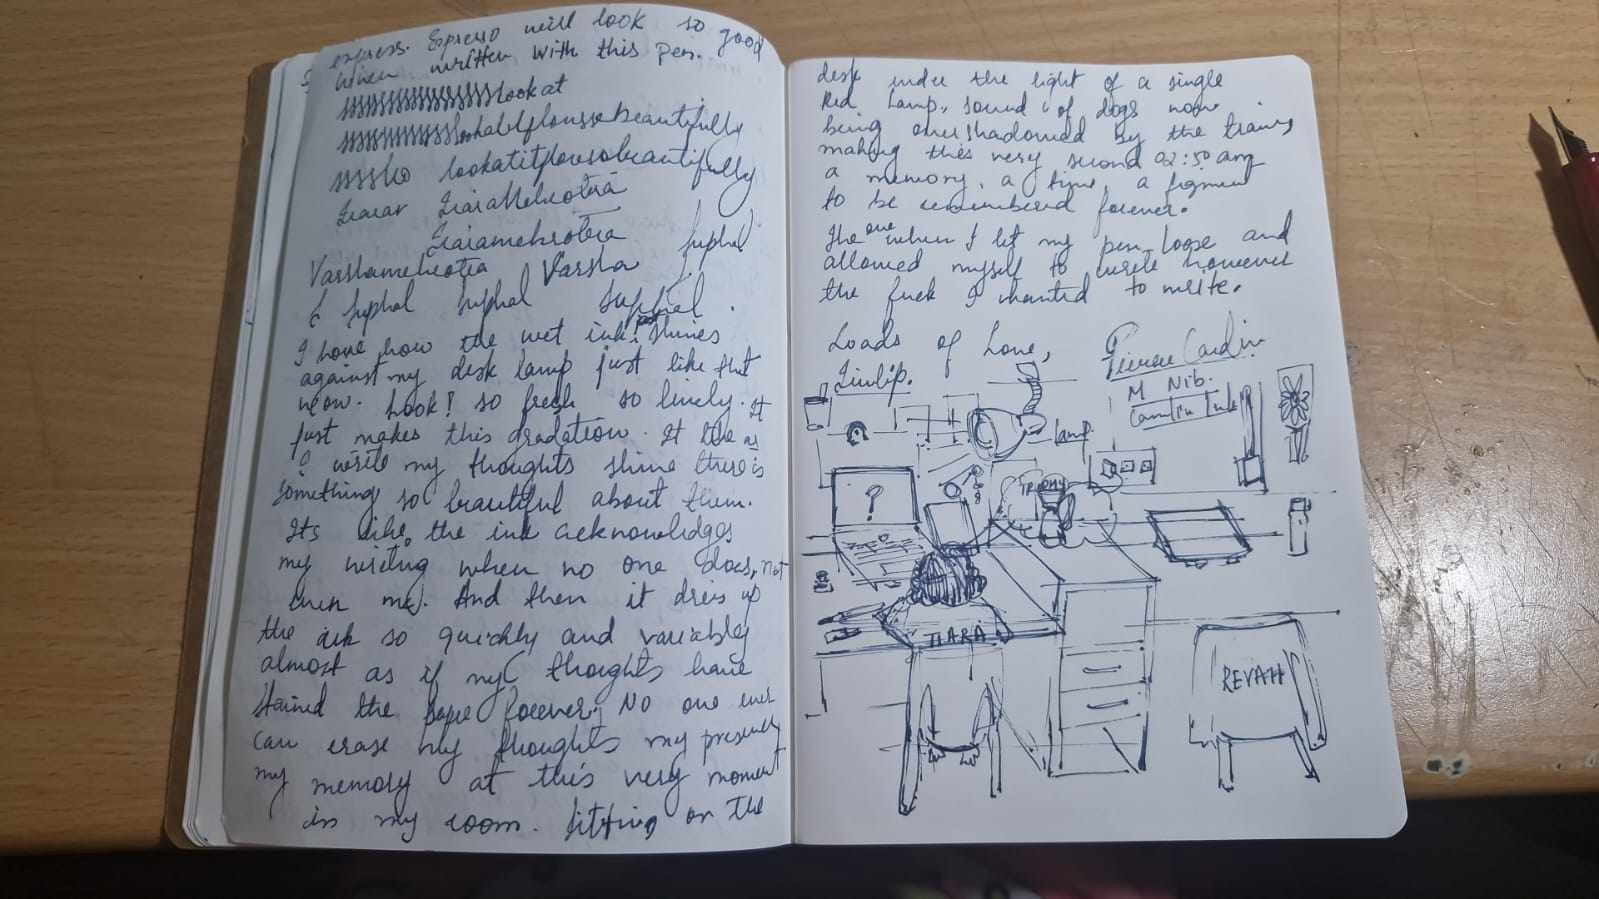 express. Espresso will look so good
when written with this pen.
sssssssssssssssss look at
beautifully
lookatitflowsobeautifully
Varshamehrotra Varsha
I love how the wet ink shines
against my desk lamp just like that
now. Look! so fresh so lively. It
just makes this gradation. It like as
I write my thoughts shine there is
something so beautiful about them.
Its like, the ink acknowledges
my writing when no one does, not
even me). And then it dries up
the ink so quickly and variably
almost as if my thoughts have
stained the page forever. No one ever
can erase my thoughts my presence
my memory at this very moment
in my room. Sitting on the
desk under the light of a single
Red Lamp, sound of dogs now
being overshadowed by the trains
making this very second 02:50 am
a memory, a time, a figment
to be remembered forever.
The one when I let my pen loose and
allowed myself to write however
the fuck I wanted to write.
Loads of Love,
Pierre Cardin
M Nib.
Camlin Ink
Lamp
?
TROPHY
TIARA
REVAH